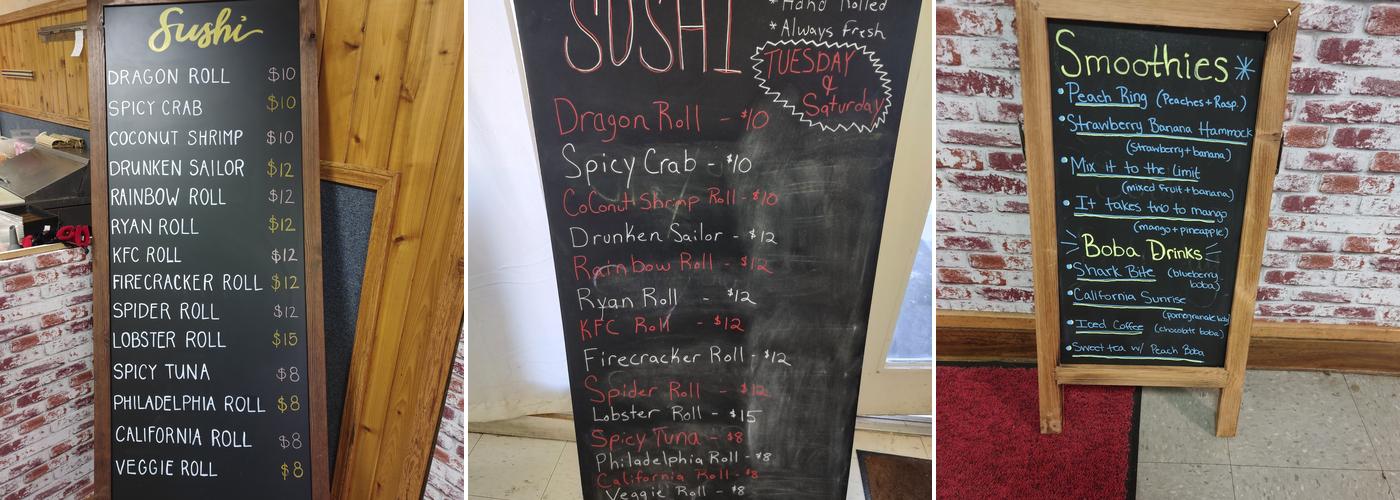 Sushi
DRAGON ROLL $10
SPICY CRAB $10
COCONUT SHRIMP $10
DRUNKEN SAILOR $12
RAINBOW ROLL $12
RYAN ROLL $12
KFC ROLL $12
FIRECRACKER ROLL $12
SPIDER ROLL $12
LOBSTER ROLL $15
SPICY TUNA $8
PHILADELPHIA ROLL $8
CALIFORNIA ROLL $8
VEGGIE ROLL $8
SUSHI
* Hand Rolled
* Always Fresh
TUESDAY
&
Saturday
Dragon Roll - $10
Spicy Crab - $10
Coconut Shrimp Roll - $10
Drunken Sailor - $12
Rainbow Roll - $12
Ryan Roll - $12
KFC Roll - $12
Firecracker Roll - $12
Spider Roll - $12
Lobster Roll - $15
Spicy Tuna - $8
Philadelphia Roll - $8
California Roll - $8
Veggie Roll - $8
Smoothies
• Peach Ring (Peaches + Rasp.)
• Strawberry Banana Hammock
(strawberry + banana)
• Mix it to the limit
(mixed fruit + banana)
• It takes two to mango
(mango + pineapple)
Boba Drinks
• Shark Bite (blueberry
boba)
• California Sunrise
(pomegranate boba)
• Iced Coffee (chocolate boba)
• Sweet tea w/ Peach Boba